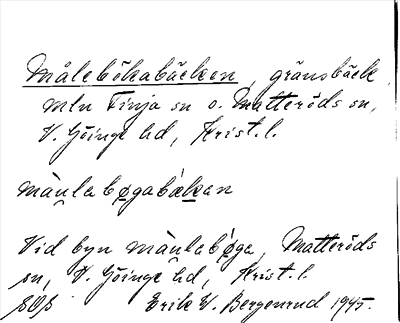 Målebökabäcken, gränsbäck
mln Finja sn o. Matteröds sn,
V. Göinge hd, Krist. l.
màu̯labø̨gabæ̀kan
Vid byn màu̯labø̨ga, Matteröds
sn, V. Göinge hd, Krist. l.
Erik W. Bergenrud 1945.